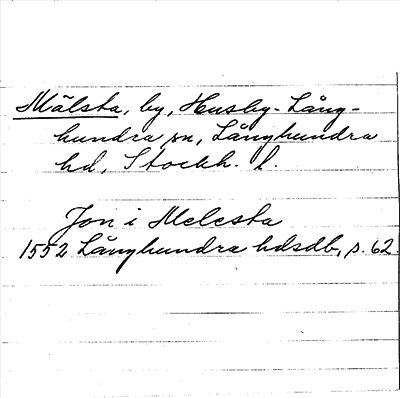 Mälsta, by, Husby-Lång-
hundra sn, Långhundra
hd, Stockh. l.
Jon i Melesta
1552 Långhundra hdsdb, s. 62.